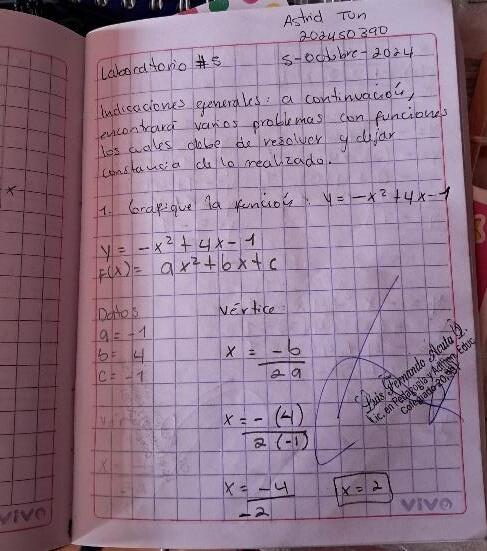 Astrid Tun
202450390
Laboratorio #5
5-Octubre-2024
Indicaciones generales: a continuación,
encontrará varios problemas con funciones
los cuales debe de resolver y dejar
constancia de lo realizado.
1. Grafique la función: y = -x² + 4x - 1
y = -x² + 4x - 1
F(x) = ax² + bx + c
Datos
a = -1
b = 4
c = -1
Vértice:
x = -b / 2a
x = -(4) / 2(-1)
x = -4 / -2
x = 2
Luis Fernando
Lic. en Pedagogía y Admon. Educ.
Colegiado
vivo
vivo
x